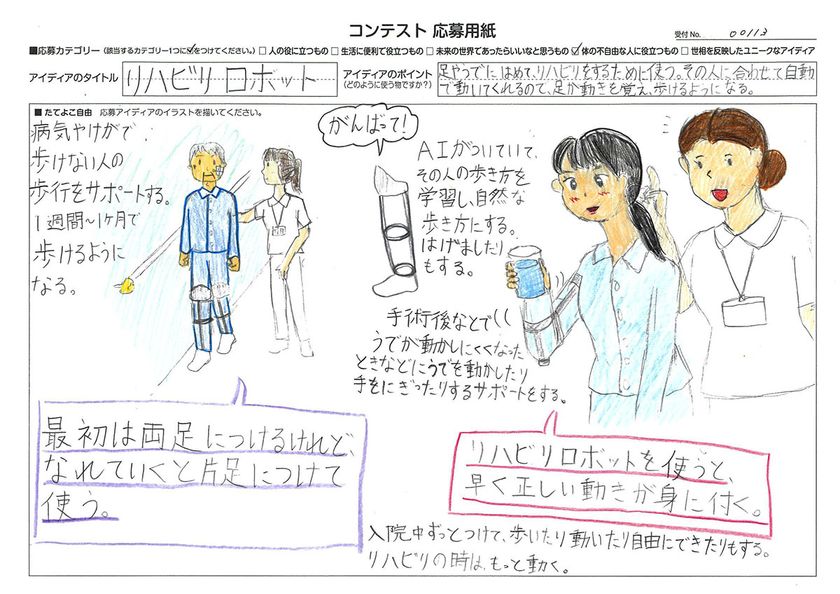 コンテスト 応募用紙
受付 No. 00113
■応募カテゴリー（該当するカテゴリー1つに✓をつけてください。） □ 人の役に立つもの □ 生活に便利で役立つもの □ 未来の世界であったらいいなと思うもの ☑ 体の不自由な人に役立つもの □ 世相を反映したユニークなアイディア
アイディアのタイトル リハビリロボット
アイディアのポイント
（どのように使う物ですか？）
足やうでにはめて、リハビリをするために使う。その人に合わせて自動
で動いてくれるので、足が動きを覚え、歩けるようになる。
■ たてよこ自由 応募アイディアのイラストを描いてください。
病気やけがで、
歩けない人の
歩行をサポートする。
1週間〜1ヶ月で
歩けるように
なる。
がんばって!
AIがついていて、
その人の歩き方を
学習し、自然な
歩き方にする。
はげましたり
もする。
手術後などで
うでが動かしにくくなった
ときなどにうでを動かしたり
手をにぎったりするサポートをする。
最初は両足につけるけれど、
なれていくと片足につけて
使う。
リハビリロボットを使うと、
早く正しい動きが身に付く。
入院中ずっとつけて、歩いたり動いたり自由にできたりもする。
リハビリの時は、もっと動く。